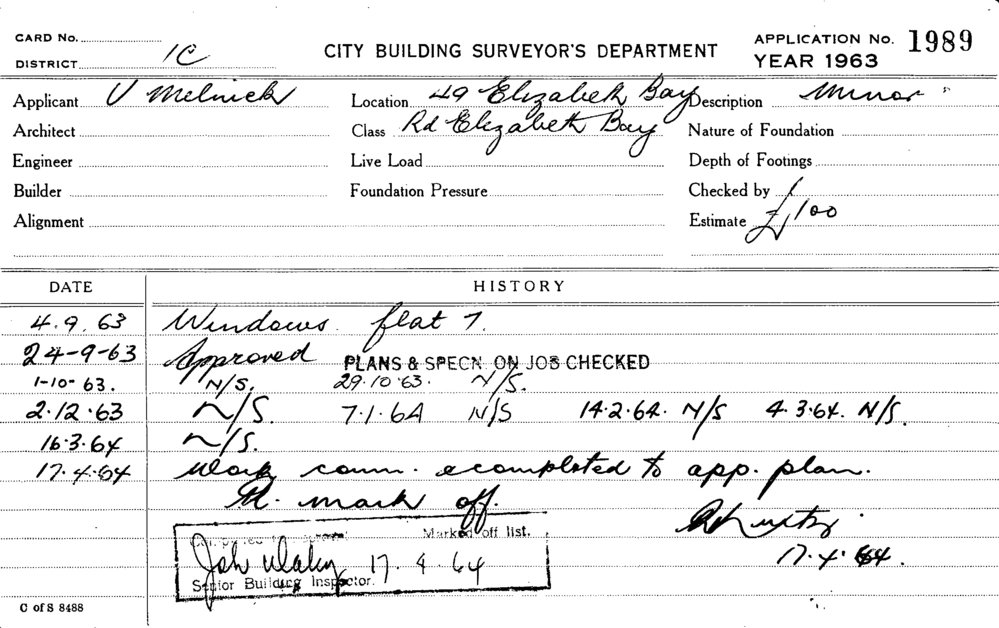 CARD No.
DISTRICT 1C
CITY BUILDING SURVEYOR'S DEPARTMENT
APPLICATION No. 1989
YEAR 1963
Applicant V Melnick
Location 49 Elizabeth Bay
Description Minor
Architect
Class Rd Elizabeth Bay
Nature of Foundation
Engineer
Live Load
Depth of Footings
Builder
Foundation Pressure
Checked by
Alignment
Estimate £100
DATE HISTORY
4.9.63 Windows flat 7.
24-9-63 Approved PLANS & SPECN. ON JOB CHECKED
1-10-63. N/S. 29.10.63. N/S.
2.12.63 N/S. 7.1.64 N/S 14.2.64. N/S 4.3.64. N/S.
16.3.64 N/S.
17.4.64 Work comm. & completed to app. plan.
mark off.
17.4.64.
Marked off list.
17.4.64
Senior Building Inspector.
C of S 8488